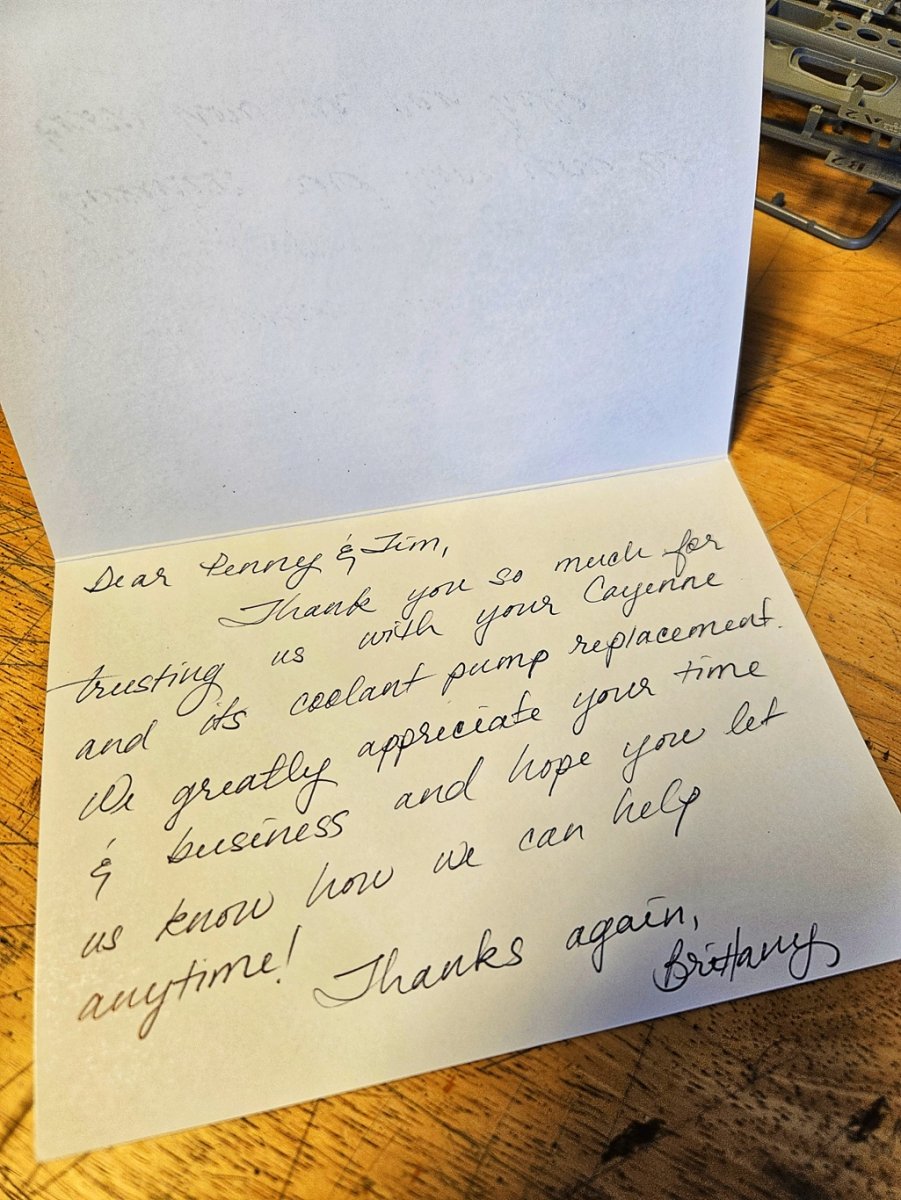 Dear Penny & Tim,
Thank you so much for
trusting us with your Cayenne
and its coolant pump replacement.
We greatly appreciate your time
& business and hope you let
us know how we can help
anytime!
Thanks again,
Brittany
A2
B2